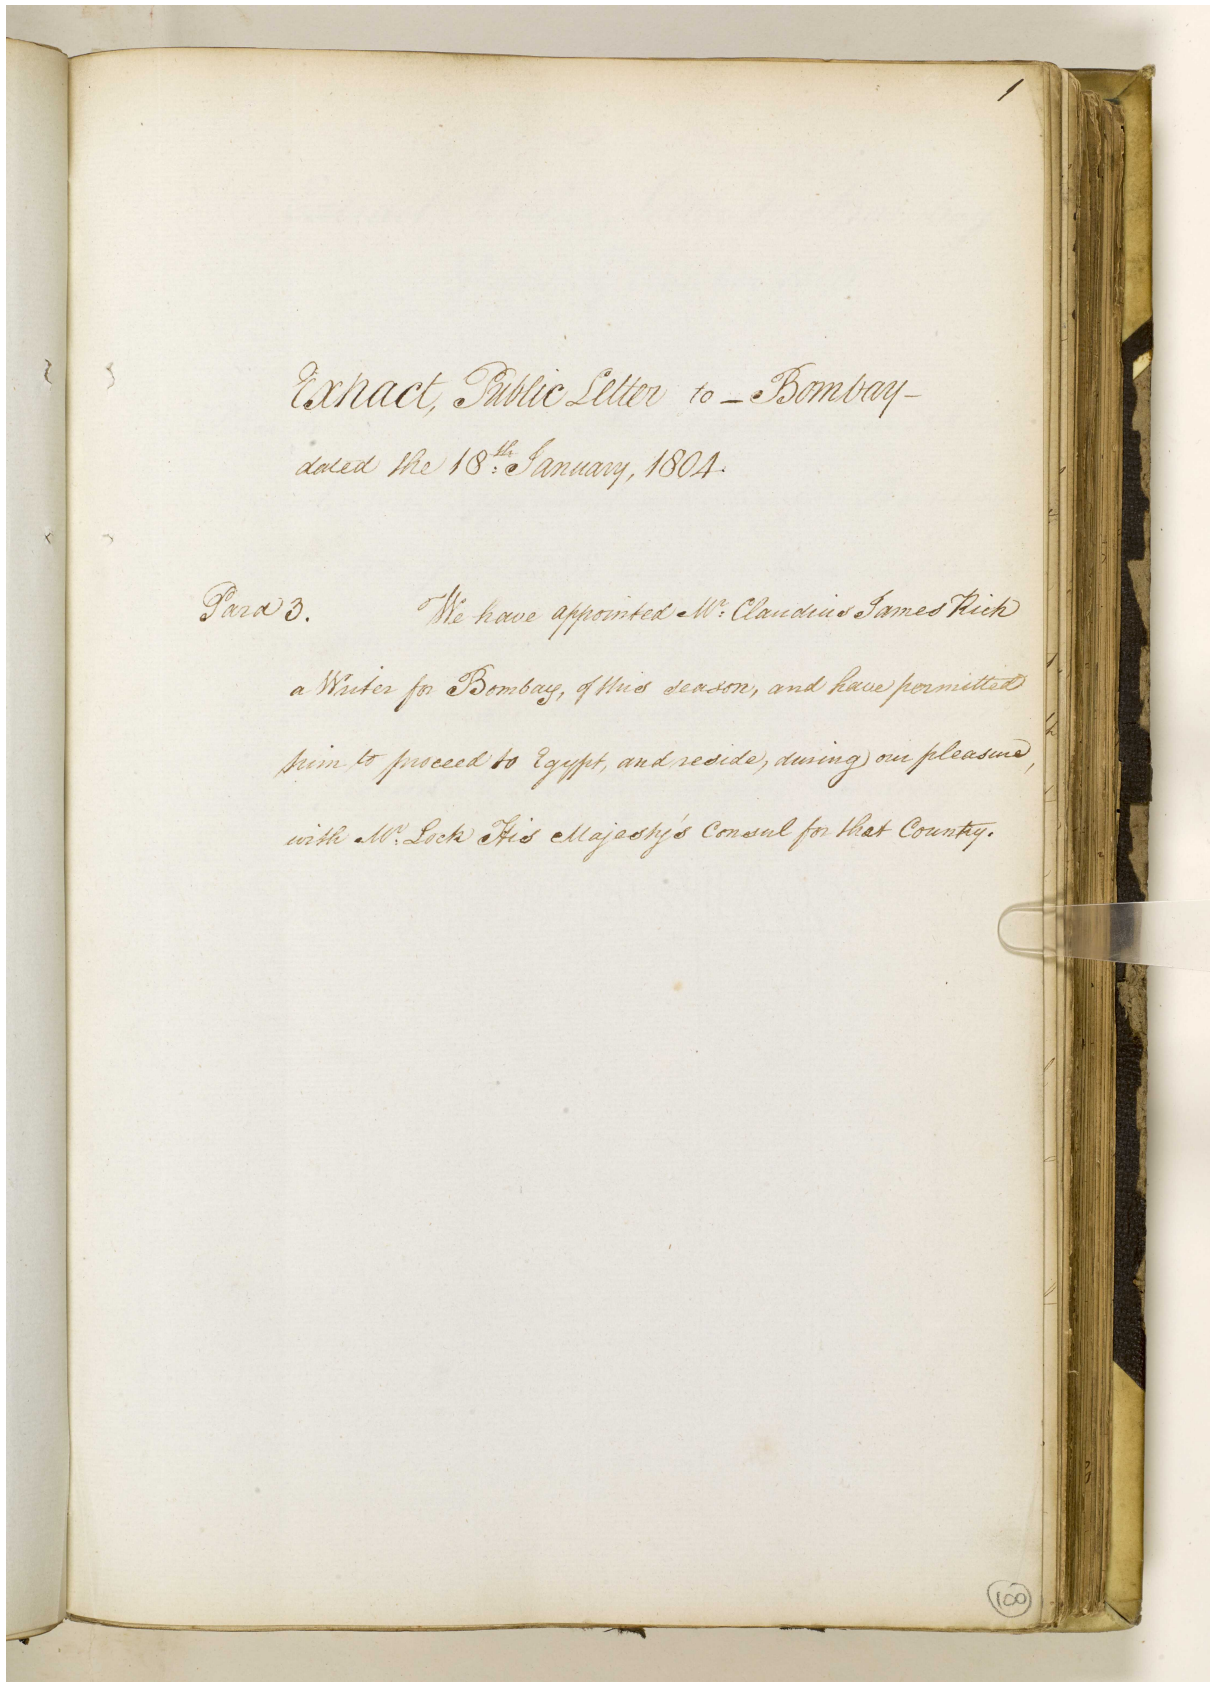 1
Extract, Public Letter to - Bombay -
dated the 18th: January, 1804.
Para 3. We have appointed Mr: Claudius James Rich
a Writer for Bombay, of this season, and have permitted
him to proceed to Egypt, and reside, during our pleasure,
with Mr: Lock His Majesty's Consul for that Country.
100